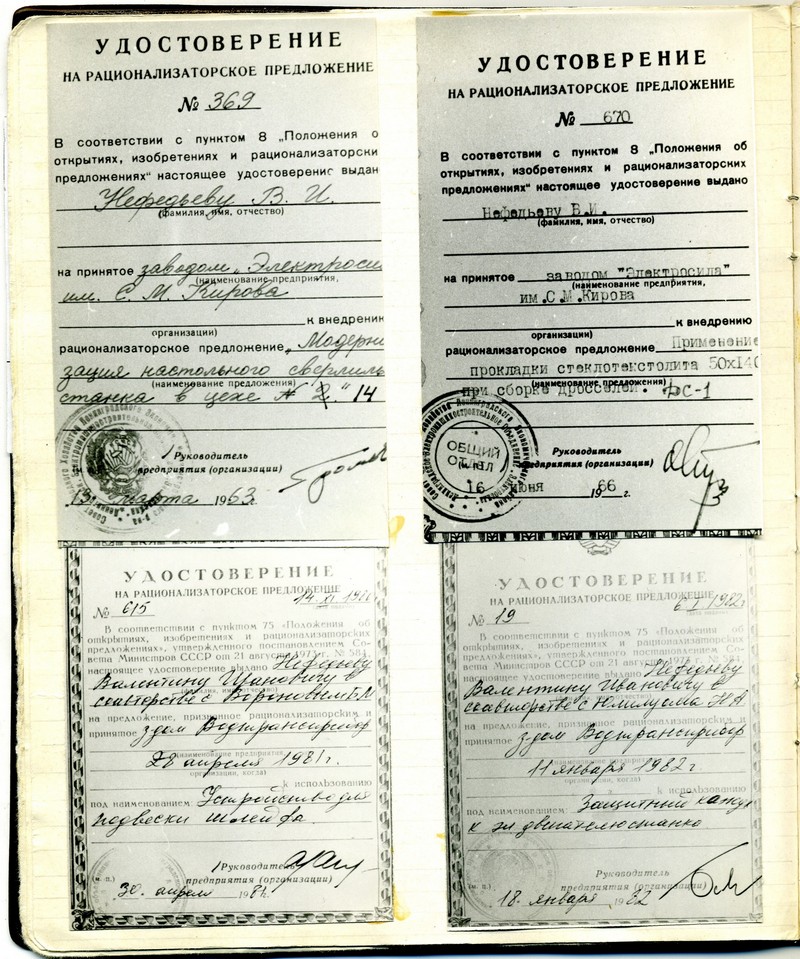 УДОСТОВЕРЕНИЕ
НА РАЦИОНАЛИЗАТОРСКОЕ ПРЕДЛОЖЕНИЕ
№ 369
В соответствии с пунктом 8 „Положения о
открытиях, изобретениях и рационализаторски
предложениях" настоящее удостоверение выдан
Нефедьеву В. И.
(фамилия, имя, отчество)
на принятое заводом „Электроси
(наименование предприятия,
им. С. М. Кирова
к внедрению
организации)
рационализаторское предложение „Модерни
зация настольного сверлиль
(наименование предложения)
станка в цехе № 2." 14
Руководитель
предприятия (организации)
13 марта 1963 г.
УДОСТОВЕРЕНИЕ
НА РАЦИОНАЛИЗАТОРСКОЕ ПРЕДЛОЖЕНИЕ
№ 670
В соответствии с пунктом 8 „Положения об
открытиях, изобретениях и рационализаторских
предложениях" настоящее удостоверение выдано
Нефедьеву В.И.
(фамилия, имя, отчество)
на принятое заводом "Электросила"
(наименование предприятия,
им.С.М.Кирова
к внедрению
организации)
рационализаторское предложение Применение
прокладки стеклотекстолита 50х140
(наименование предложения)
при сборке дросселей. ДС-1
ОБЩИЙ
ОТДЕЛ
Руководитель
предприятия (организации)
16 июня 1966 г.
УДОСТОВЕРЕНИЕ
НА РАЦИОНАЛИЗАТОРСКОЕ ПРЕДЛОЖЕНИЕ
№ 615 14. XI. 1980
В соответствии с пунктом 75 «Положения об
открытиях, изобретениях и рационализаторских
предложениях», утвержденного постановлением Со-
вета Министров СССР от 21 августа 1973 г. № 584,
настоящее удостоверение выдано Нефедьеву
Валентину Ивановичу в
соавторстве с
на предложение, признанное рационализаторским и
принятое
(наименование предприятия,
28 апреля 1981 г.
организации, когда)
к использованию
под наименованием: Устройство для
подвески шлейфа.
Руководитель
предприятия (организации)
(м. п.)
30. апреля 1981 г.
УДОСТОВЕРЕНИЕ
НА РАЦИОНАЛИЗАТОРСКОЕ ПРЕДЛОЖЕНИЕ
№ 19 6 I 1982 г
В соответствии с пунктом 75 «Положения об
открытиях, изобретениях и рационализаторских
предложениях», утвержденного постановлением Со-
вета Министров СССР от 21 августа 1973 г. № 584,
настоящее удостоверение выдано Нефедьеву
Валентину Ивановичу в
соавторстве с
на предложение, признанное рационализаторским и
принятое
(наименование предприятия,
11 января 1982 г.
организации, когда)
к использованию
под наименованием: Защитный кожух
к эл двигателю станка
Руководитель
предприятия (организации)
(м. п.)
18. января 1982 г.